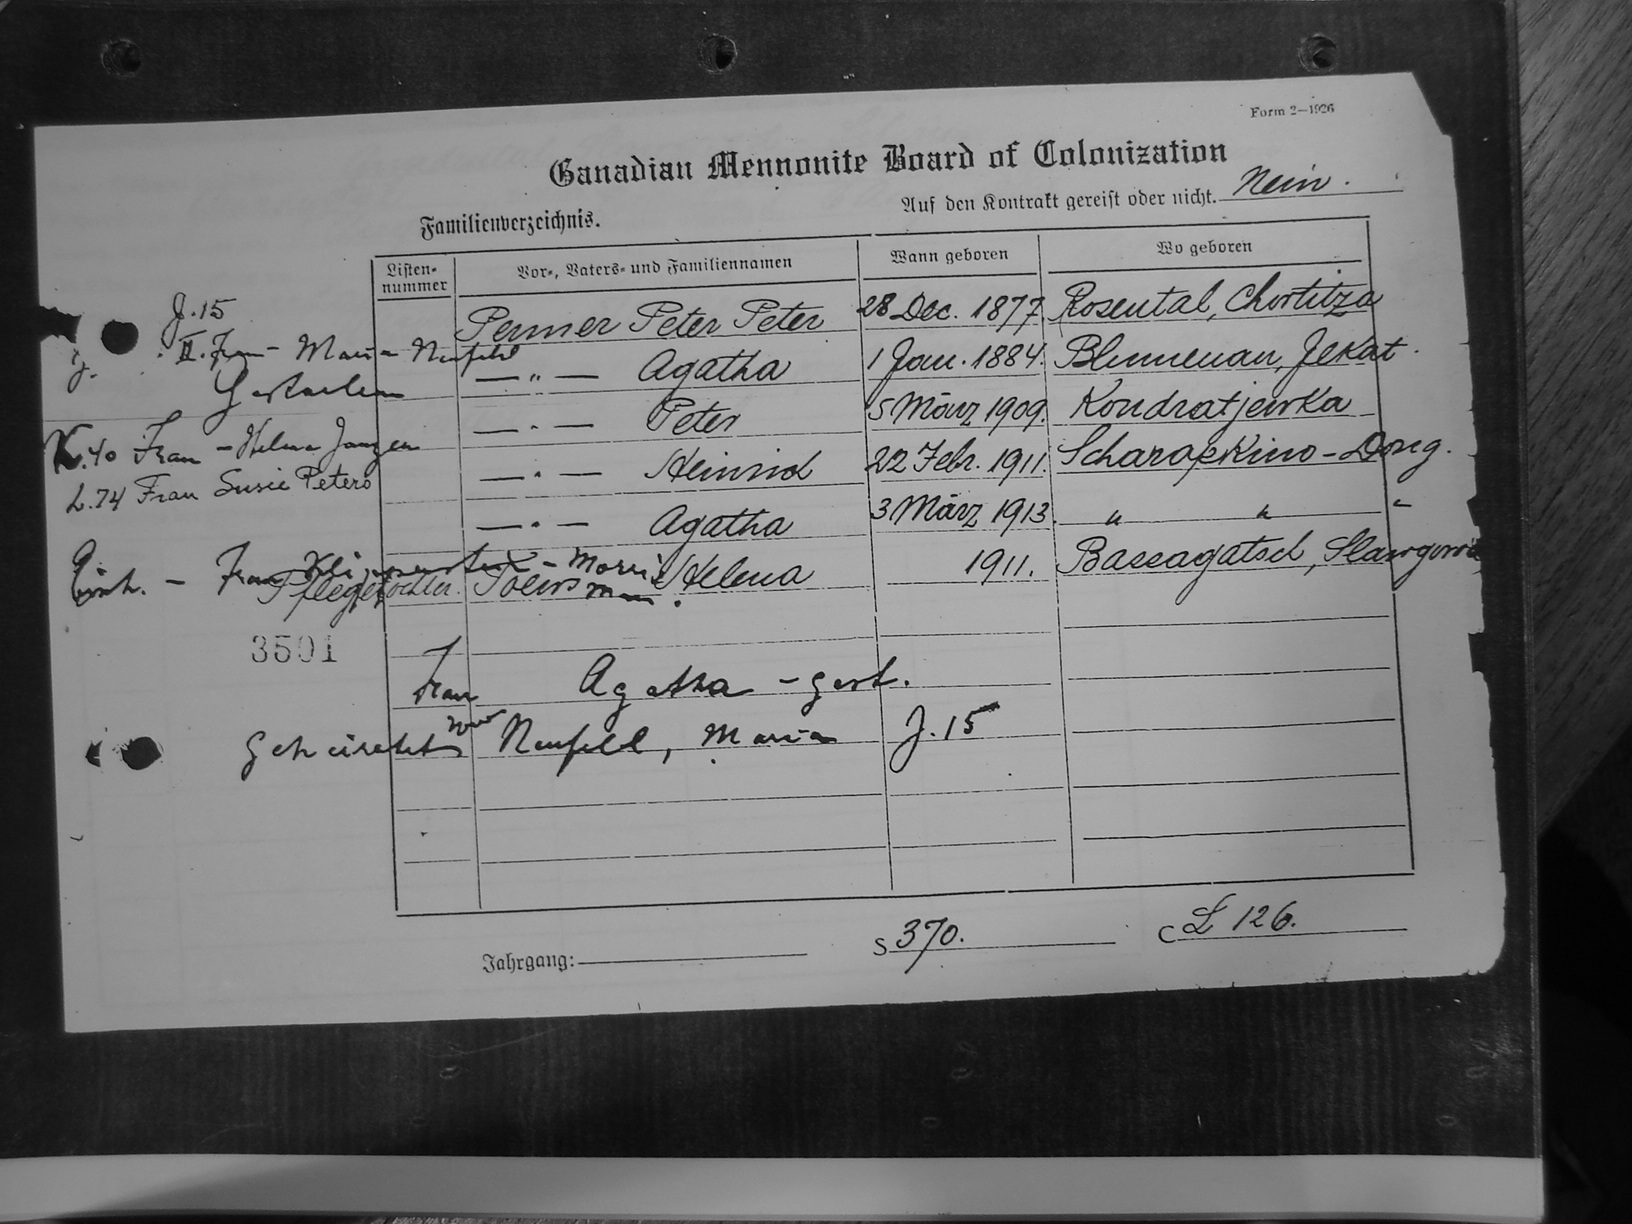 Form 2—1926
Canadian Mennonite Board of Colonization
Auf den Kontrakt gereist oder nicht. Nein.
Familienverzeichnis.
Listen-nummer Vor-, Vaters- und Familiennamen Wann geboren Wo geboren
J.15
Penner Peter Peter 28 Dec. 1877 Rosental, Chortitza
II. Frau - Maria Neufeld
—"— Agatha 1 Jan. 1884. Blumenau, Jekat.
Gestorben
—"— Peter 5 März 1909. Kondratjewka
K.40 Frau - Helena Janzen
—"— Heinrich 22 Febr. 1911. Scharapkino-Dong.
L.74 Frau Susie Peters
—"— Agatha 3 März 1913. " " "
Frau - Morris Man.
Pflegetochter. Toews Helena 1911. Bassagatsch, Slawgorod
3501
Frau Agatha - gest.
Geheiratet Neufeld, Maria J.15
Jahrgang: S 370. C L 126.